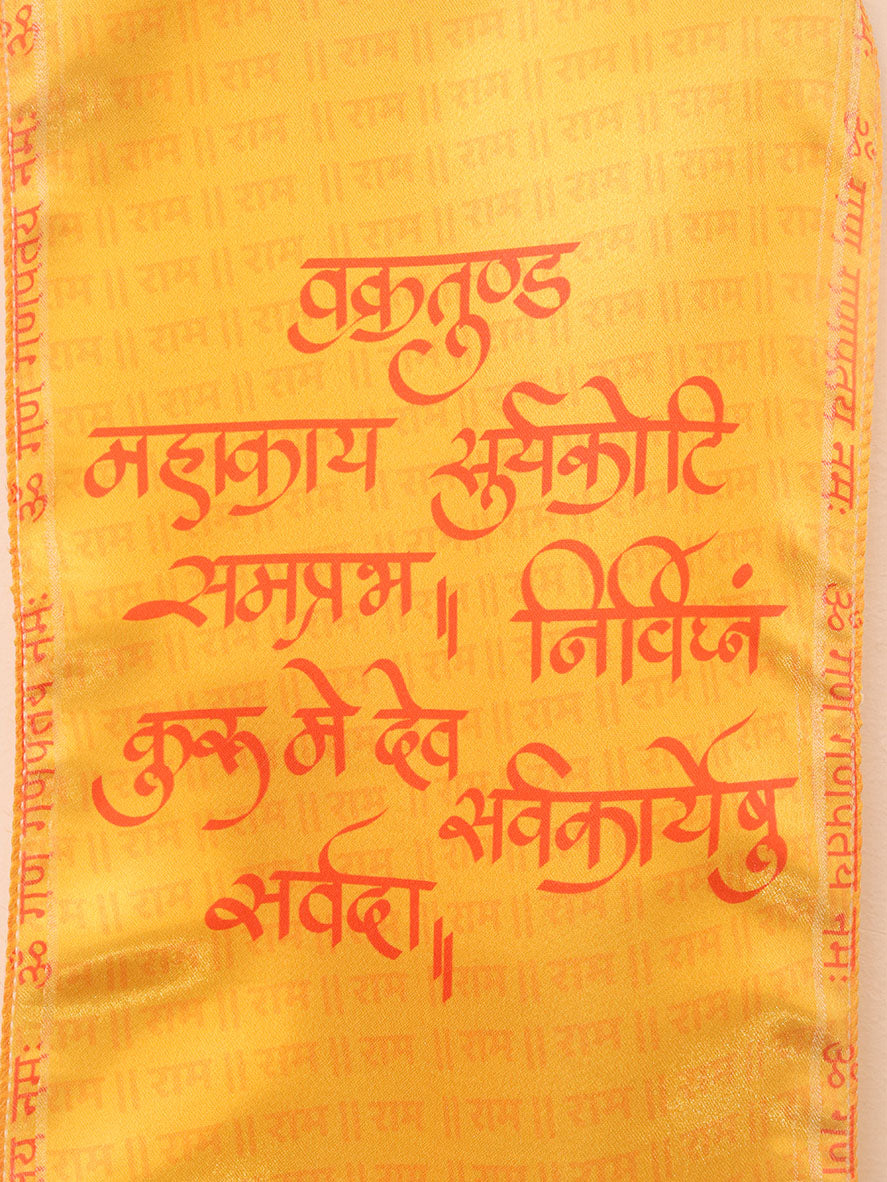 वक्रतुण्ड
महाकाय सुर्यकोटि
समप्रभ॥ निर्विघ्नं
कुरु मे देव सर्वकार्येषु
सर्वदा॥
ॐ गण गणपतय नमः ॐ गण गणपतय नमः
ॐ गण गणपतय नमः ॐ गण गणपतय नमः ॐ गण
राम ॥ राम ॥ राम ॥ राम ॥ राम ॥ राम ॥ राम ॥ राम